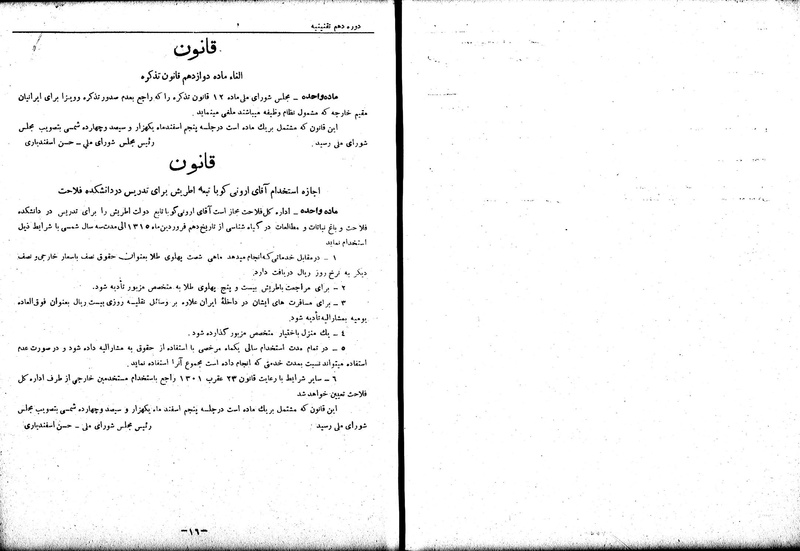 دوره دهم تقنینیه
قانون
الغاء ماده دوازدهم قانون تذکره
ماده واحده - مجلس شورای ملی ماده ۱۲ قانون تذکره را که راجع بعدم صدور تذکره وویزا برای ایرانیان
مقیم خارجه که مشمول نظام وظیفه میباشند ملغی مینماید
این قانون که مشتمل بریك ماده است درجلسه پنجم اسفندماه یکهزار و سیصد وچهارده شمسی بتصویب مجلس
شورای ملی رسید . رئیس مجلس شورای ملی - حسن اسفندیاری
قانون
اجازه استخدام آقای ارونی کوبا تبعه اطریش برای تدریس دردانشکده فلاحت
ماده واحده - اداره کل فلاحت مجاز است آقای ارونی کوبا تابع دولت اطریش را برای تدریس در دانشکده
فلاحت و باغ نباتات و مطالعات در گیاه شناسی از تاریخ دهم فروردین ماه ۱۳۱۵ الی مدت سه سال شمسی با شرایط ذیل
استخدام نماید
۱ - درمقابل خدماتی که انجام میدهد ماهی شصت پهلوی طلا بعنوان حقوق نصف باسعار خارجی و نصف
دیگر به نرخ روز ریال دریافت دارد.
۲ - برای مراجعت باطریش بیست و پنج پهلوی طلا به متخصص مزبور تأدیه شود.
۳ - برای مسافرت های ایشان در داخلهٔ ایران علاوه بر وسائل نقلیه روزی بیست ریال بعنوان فوق العاده
یومیه بمشارالیه تأدیه شود.
٤ - یك منزل باختیار متخصص مزبور گذارده شود .
٥ - در تمام مدت استخدام سالی یکماه مرخصی با استفاده از حقوق به مشارالیه داده شود و در صورت عدم
استفاده میتواند نسبت بمدت خدمتی که انجام داده است مجموع آنرا استفاده نماید .
٦ - سایر شرایط با رعایت قانون ۲۳ عقرب ۱۳۰۱ راجع باستخدام مستخدمین خارجی از طرف اداره کل
فلاحت تعیین خواهد شد
این قانون که مشتمل بریك ماده است درجلسه پنجم اسفند ماه یکهزار و سیصد وچهارده شمسی بتصویب مجلس
شورای ملی رسید رئیس مجلس شورای ملی - حسن اسفندیاری
-۱٦-